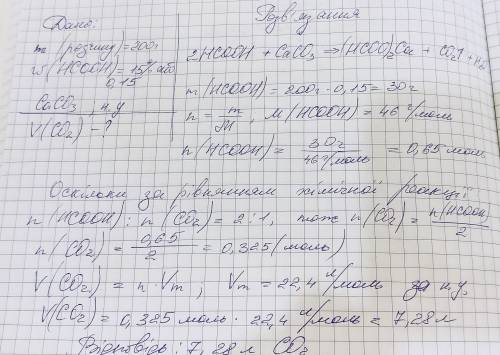 Дано:
Розв'язання
m(розчину)=200г
w(HCOOH)=15% або
0,15
CaCO₃, н.у
V(CO₂)-?
2HCOOH + CaCO₃ → (HCOO)₂Ca + CO₂↑ + H₂
m(HCOOH) = 200г · 0,15 = 30г
n = m/M, M(HCOOH) = 46 г/моль
n(HCOOH) = 30г / 46 г/моль = 0,65 моль
Оскільки за рівнянням хімічної реакції
n(HCOOH) : n(CO₂) = 2:1, тож n(CO₂) = n(HCOOH)/2
n(CO₂) = 0,65/2 = 0,325 (моль)
V(CO₂) = n · Vm ; Vm = 22,4 л/моль за н.у.
V(CO₂) = 0,325 моль · 22,4 л/моль = 7,28л
Відповідь: 7,28 л CO₂